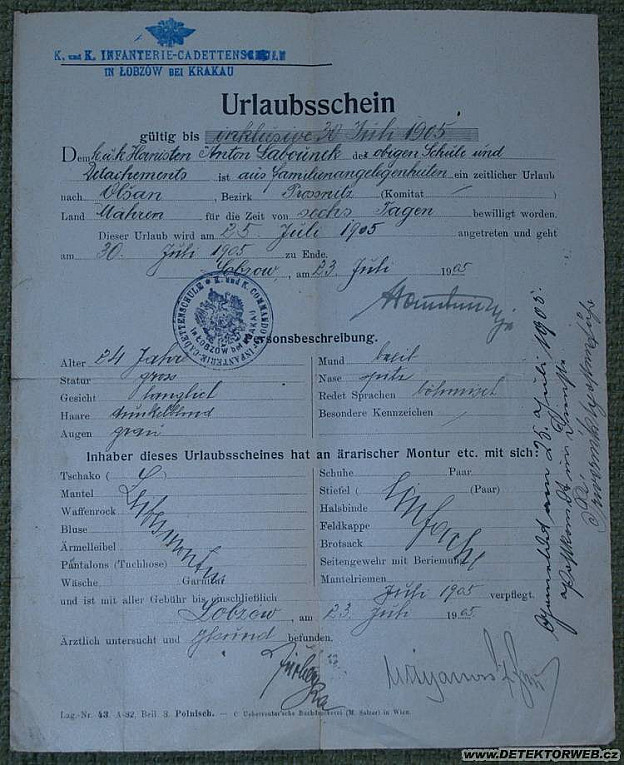 K. und K. INFANTERIE-CADETTENSCHULE
IN ŁOBZÓW BEI KRAKAU
Urlaubsschein
gültig bis inklusive 30 Juli 1905
Dem k.u.k. Anton des obigen Schule und
Detachements ist aus Familienangelegenheiten ein zeitlicher Urlaub
nach Olšan, Bezirk Prossnitz (Komitat /)
Land Mähren für die Zeit von sechs Tagen bewilligt worden.
Dieser Urlaub wird am 25 Juli 1905 angetreten und geht
am 30. Juli 1905 zu Ende.
Lobzow, am 23. Juli 1905
K. und K. COMMANDO
INFANTERIE-CADETTENSCHULE
IN ŁOBZÓW BEI KRAKAU
Personsbeschreibung.
Alter 24 Jahre
Statur gross
Gesicht länglich
Haare dunkelblond
Augen grau
Mund breit
Nase spitz
Redet Sprachen böhmisch
Besondere Kennzeichen /
Inhaber dieses Urlaubsscheines hat an ärarischer Montur etc. mit sich:
Tschako (
Mantel
Waffenrock
Bluse
Ärmelleibel
Pantalons (Tuchhose)
Wäsche Garnitur
Leibesmontur
Schuhe Paar
Stiefel ( (Paar)
Halsbinde
Feldkappe
Brotsack
Seitengewehr mit Beriemung
Mantelriemen
Einfache
und ist mit aller Gebühr bis einschließlich Juli 1905 verpflegt.
Lobzow, am 23. Juli 1905
Ärztlich untersucht und gesund befunden.
Lag.-Nr. 43. A-32, Beil 3. Polnisch. — C Ueberreuter'sche Buchdruckerei (M. Salzer) in Wien.
am 25. Juli 1905.
www.DETEKTORWEB.cz